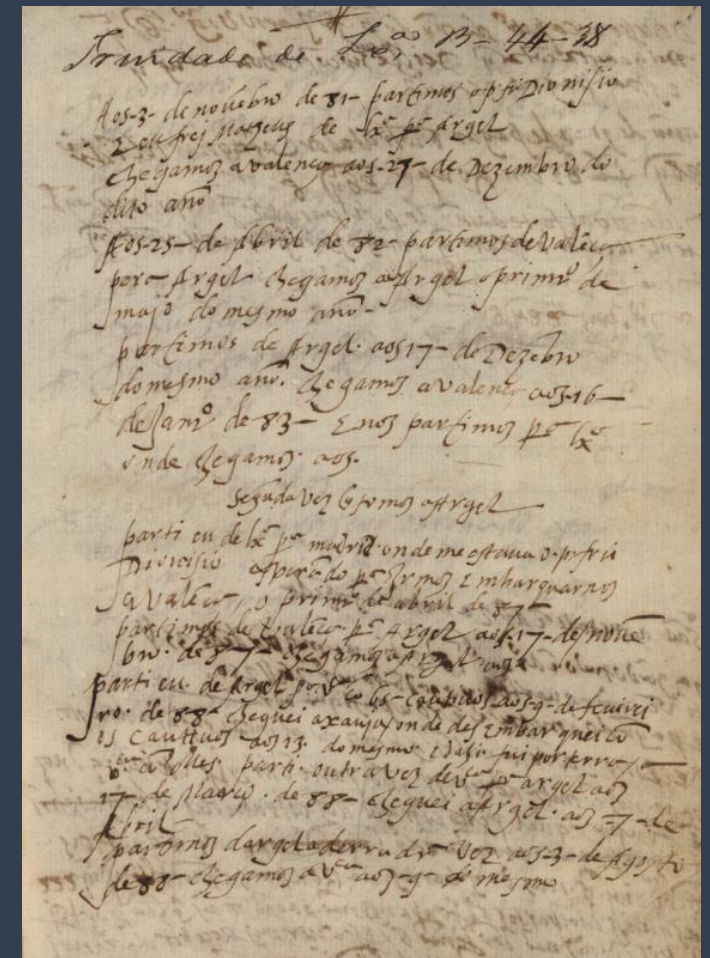 Trindade de Lxa 13-44-38
Aos-3- de novẽbro de 81- partimos o p. frei Dionisio
E eu frej Matheus de Lxa pa Argel
chegamos a valença aos-27- de Dezembro do
dito ano
Aos-25- de Abril de 82- partimos de valẽça
pera Argel chegamos a Argel o primro de
majo do mesmo ano-
partimos de Argel. aos 17- de Dezẽbro
do mesmo ano. chegamos a valença aos-16-
de Janro de 83- E nos partimos pa Lxa
onde chegamos aos.
Segũda vez q̃ fomos a Argel
parti eu de Lxa pa madrid onde me estava o. p. frei
Dionisio esperãdo pa Irmos Embarquarnos
a valẽça, o primro de abril de 87-
partimos de valẽça. pa Argel aos.17- de novẽ
bro. de 87- chegamos a Argel
parti eu. de Argel cõ cautivos. aos-9- de feverei
ro. de 88- cheguei a onde desEmbarquei cõ
os cautivos aos 13. do mesmo fui por terra
parti. outra vez de pa argel aos
17- de Março. de 88- cheguei a Argel. aos -7- de
Abril
partimos dargel a derradra vez aos-3- de Agosto
de 88- chegamos a aos-9- do mesmo